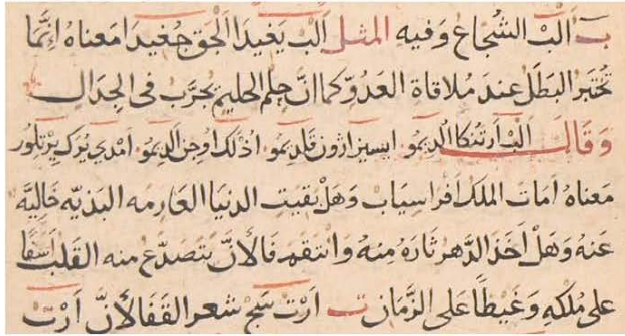 ب اَلبْ الشُجاع وَفيه المثل اَلبْ يَغيدَا اَلجَق جُغيدَا مَعناهُ اِنَّمَا
تُختَبر البَطَل عندَ مُلاقاة العَدُوّ كما انَّ حِلم الحليم يجرَّب فى الجِدال
وَقَالَ الب اَرتُنكا اُلدِيمُو ايسيز اژون قَلدِيمُو اُذلَك اوجن اَلدِيمُو اَمدِي يُرَك يِرْتلُور
مَعناهُ اَمَات الملك اَفراسيَاب وَهَل بَقيَت الدنيا العَارِمَه البَذيّه خَاليَه
عَنهُ وَهَل اَخَذ الدَّهر ثَارَهُ مِنهُ وانتقَم فَالاَنَّ يَتَصدَّع منه القَلب اَسَفًا
على مُلكِه وَغَيظًا عَلى الزَّمان ت اَرْتْ سَجْ شعر القَفَا لاَنَّ اَرْتْ